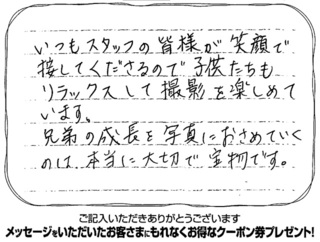 いつもスタッフの皆様が笑顔で
接してくださるので子供たちも
リラックスして撮影を楽しめて
います。
兄弟の成長を写真におさめていく
のは本当に大切で宝物です。
ご記入いただきありがとうございます
メッセージをいただいたお客さまにもれなくお得なクーポン券プレゼント!